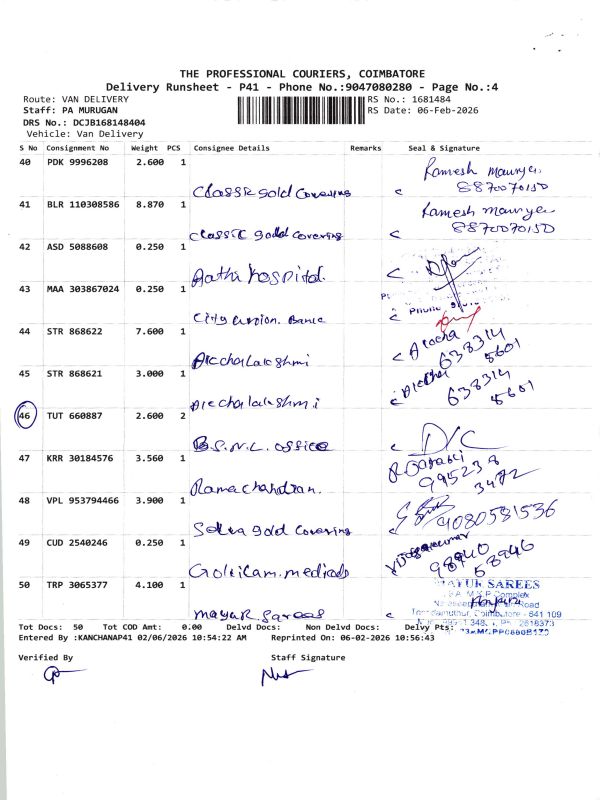 THE PROFESSIONAL COURIERS, COIMBATORE
Delivery Runsheet - P41 - Phone No.:9047080280 - Page No.:4
Route: VAN DELIVERY
RS No.: 1681484
Staff: PA MURUGAN
RS Date: 06-Feb-2026
DRS No.: DCJB168148404
Vehicle: Van Delivery
S No Consignment No Weight PCS Consignee Details Remarks Seal & Signature
40 PDK 9996208 2.600 1
Classic gold Covering
Ramesh Maurya
8870070150
41 BLR 110308586 8.870 1
Classic gold Covering
Ramesh Maurya
8870070150
42 ASD 5088608 0.250 1
hospital.
43 MAA 303867024 0.250 1
City union Bank
PHONE
44 STR 868622 7.600 1
638314
8601
45 STR 868621 3.000 1
638314
8601
46 TUT 660887 2.600 2
B.S.N.L. office
D/C
47 KRR 30184576 3.560 1
Ramachandran.
995238
3472
48 VPL 953794466 3.900 1
gold Covering
9080581536
49 CUD 2540246 0.250 1
medicals
98940
58946
50 TRP 3065377 4.100 1
mayuR Sarees
MAYUR SAREES
Complex
Road
Coimbatore - 641 109
2618373
Tot Docs: 50 Tot COD Amt: 0.00 Delvd Docs: Non Delvd Docs: Delvy Pts:
Entered By :KANCHANAP41 02/06/2026 10:54:22 AM Reprinted On: 06-02-2026 10:56:43
Verified By Staff Signature